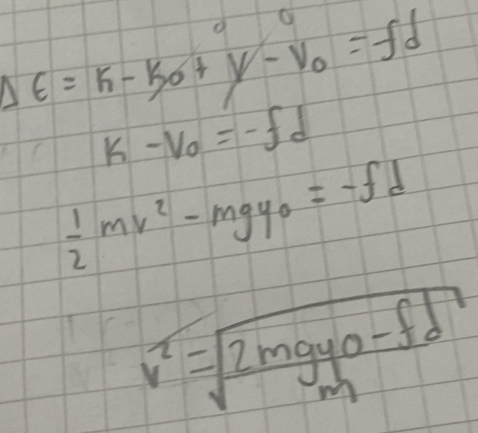 0 0
Δ E = K - K0 + V - V0 = -fd
K - V0 = -fd
1/2 mv² - mgy0 = -fd
√v² = √(2mgy0 - fd / m)